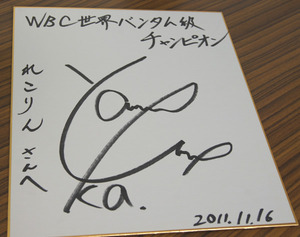 WBC世界バンタム級
チャンピオン
れこりんさんへ
2011.11.16